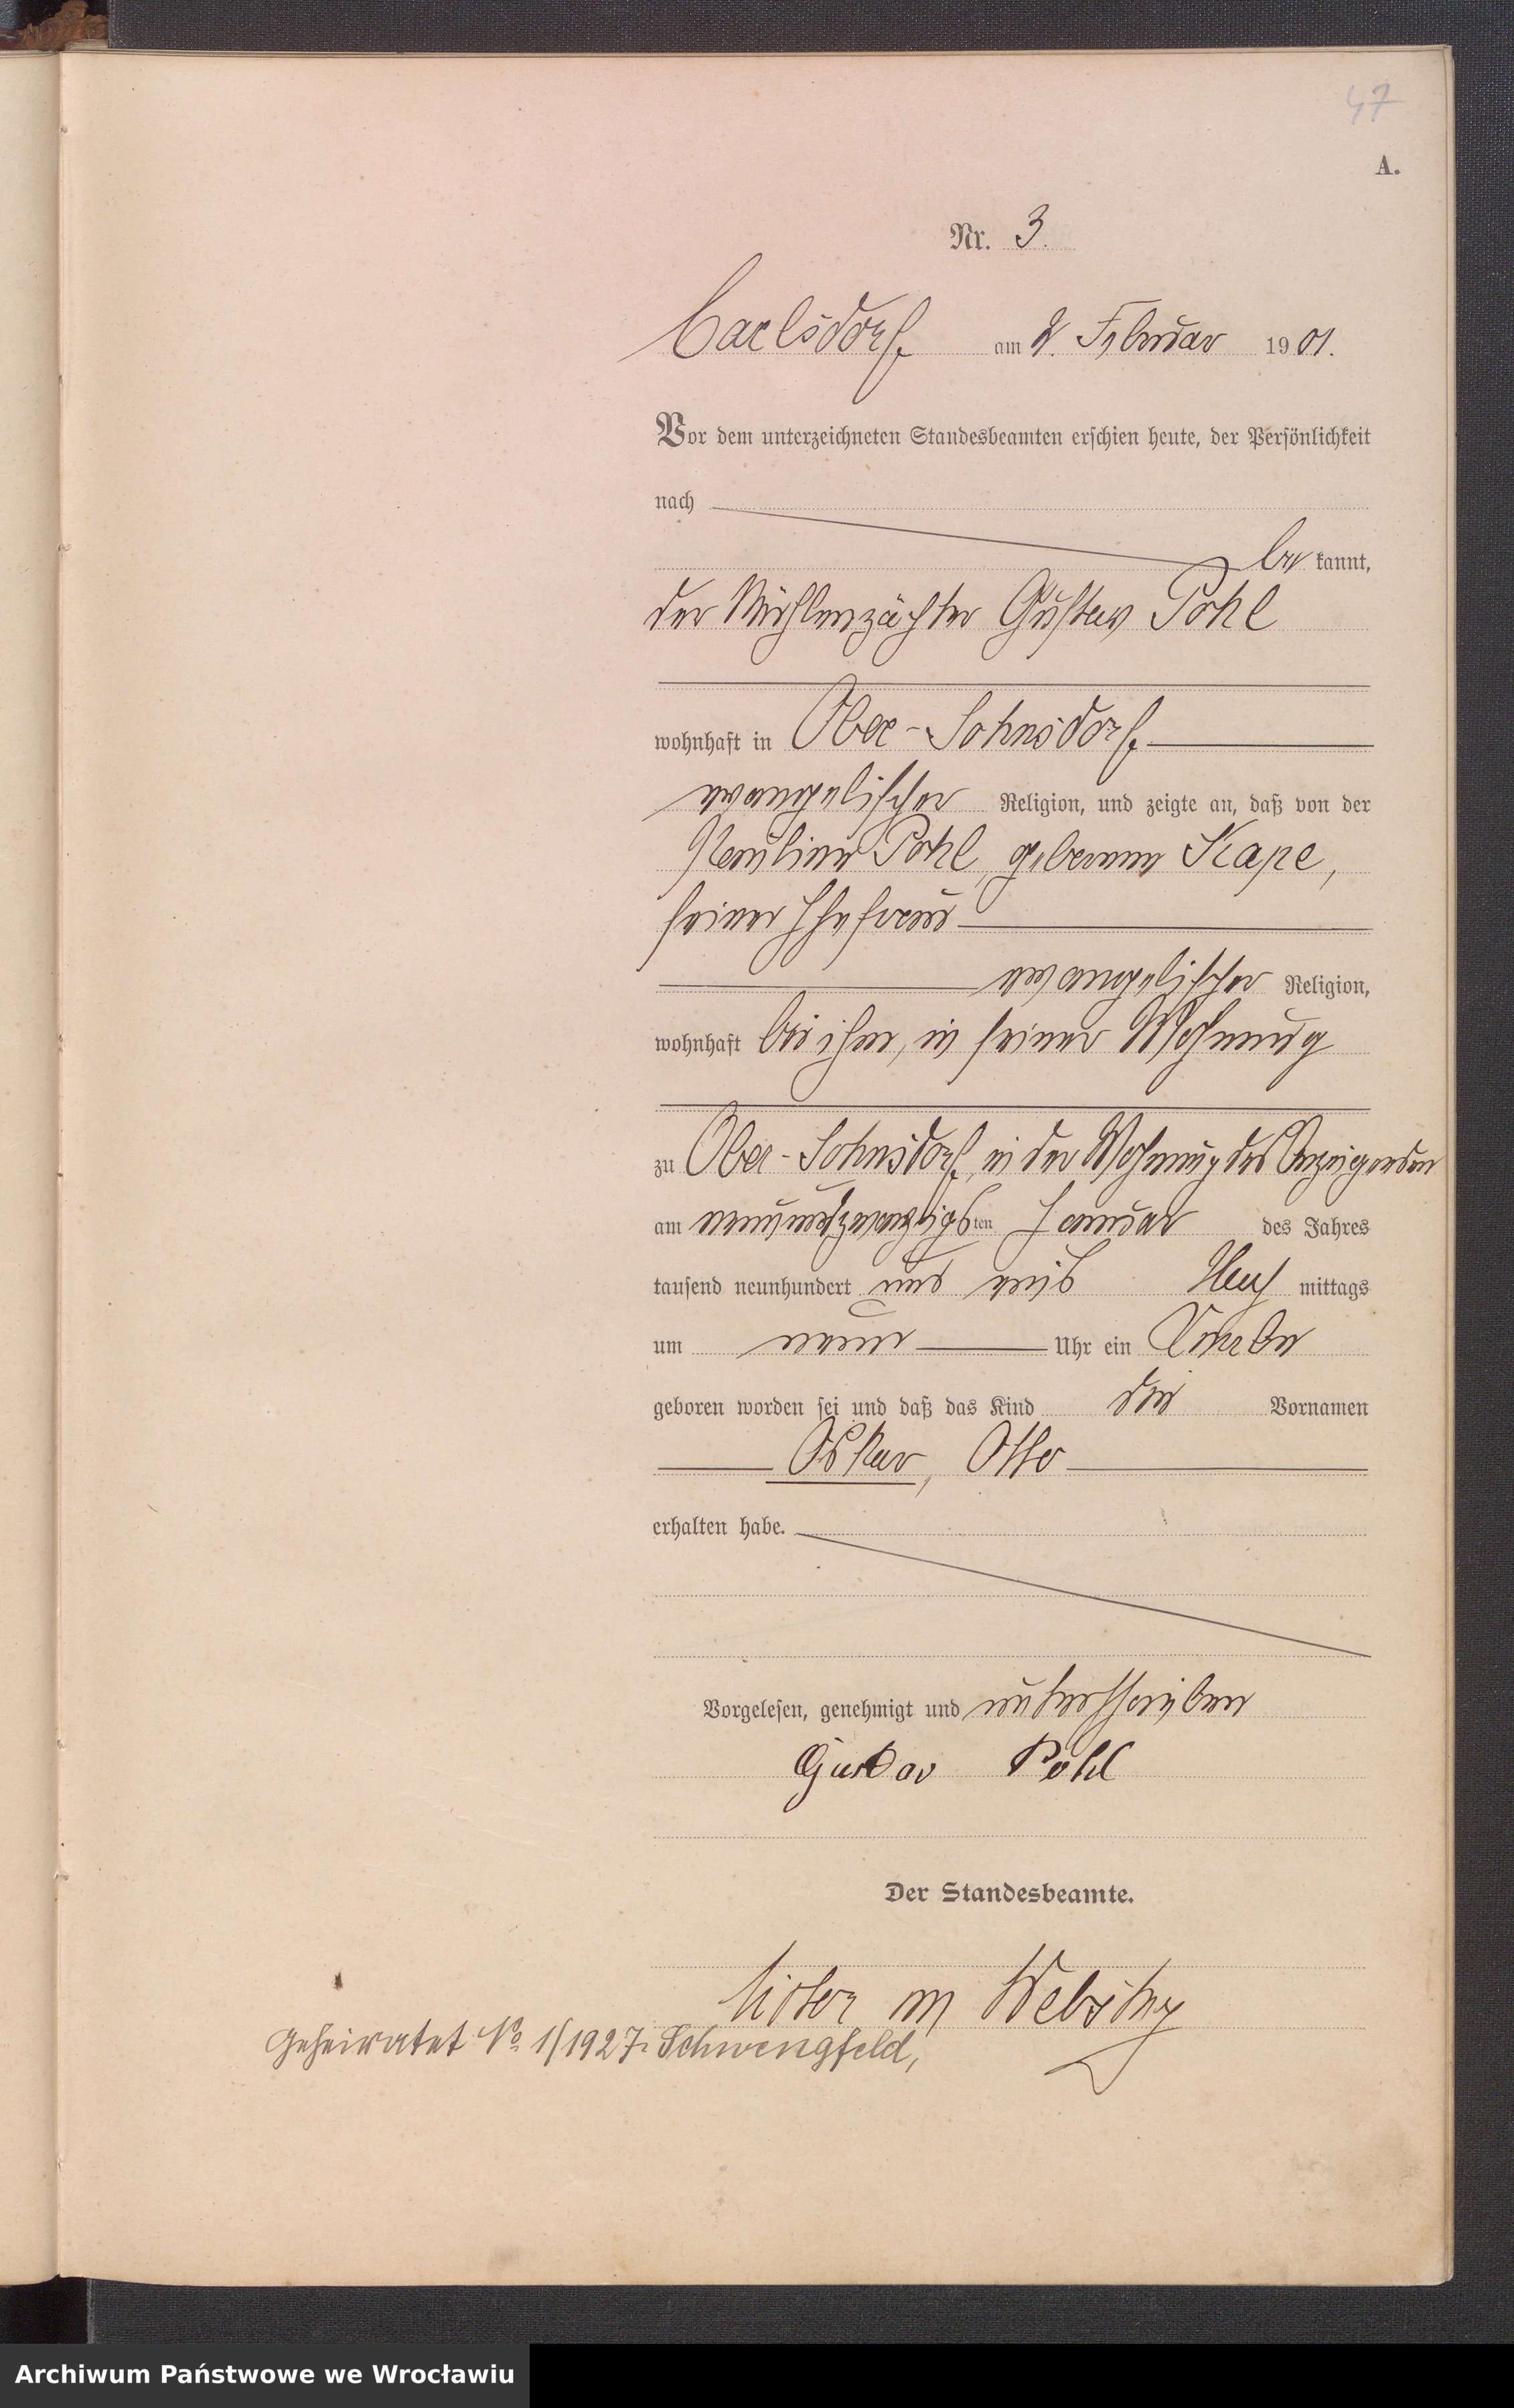 47
A.
Nr. 3.
Carlsdorf am 2. Februar 1901.
Vor dem unterzeichneten Standesbeamten erschien heute, der Persönlichkeit
nach
be kannt,
der Mühlenpächter Gustav Pohl
wohnhaft in Ober-Johnsdorf
evangelischer Religion, und zeigte an, daß von der
Pauline Pohl, geborenen Kape,
seiner Ehefrau
evangelischer Religion,
wohnhaft bei ihm, in seiner Wohnung
zu Ober-Johnsdorf, in der Wohnung des Anzeigenden
am neunundzwanzigsten Januar des Jahres
tausend neunhundert und eins Nach mittags
um neun Uhr ein Knabe
geboren worden sei und daß das Kind die Vornamen
Oskar, Otto
erhalten habe.
Vorgelesen, genehmigt und unterschrieben
Gustav Pohl
Der Standesbeamte.
Geheiratet No 1/1927. Schwengfeld,
Archiwum Państwowe we Wrocławiu